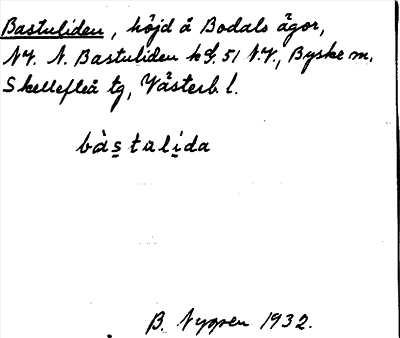 Bastuliden, höjd å Bodals ägor,
NV. N. Bastuliden kd. 51 N.V., Byske m.
Skellefteå tg, Västerb. l.
bàstulida
B. Nygren 1932.